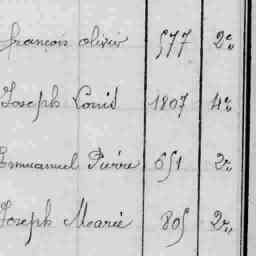 françois olivier 577 2
Joseph Louis 1807 4
Emmanuel Pierre 651 2
Joseph Marie 805 2